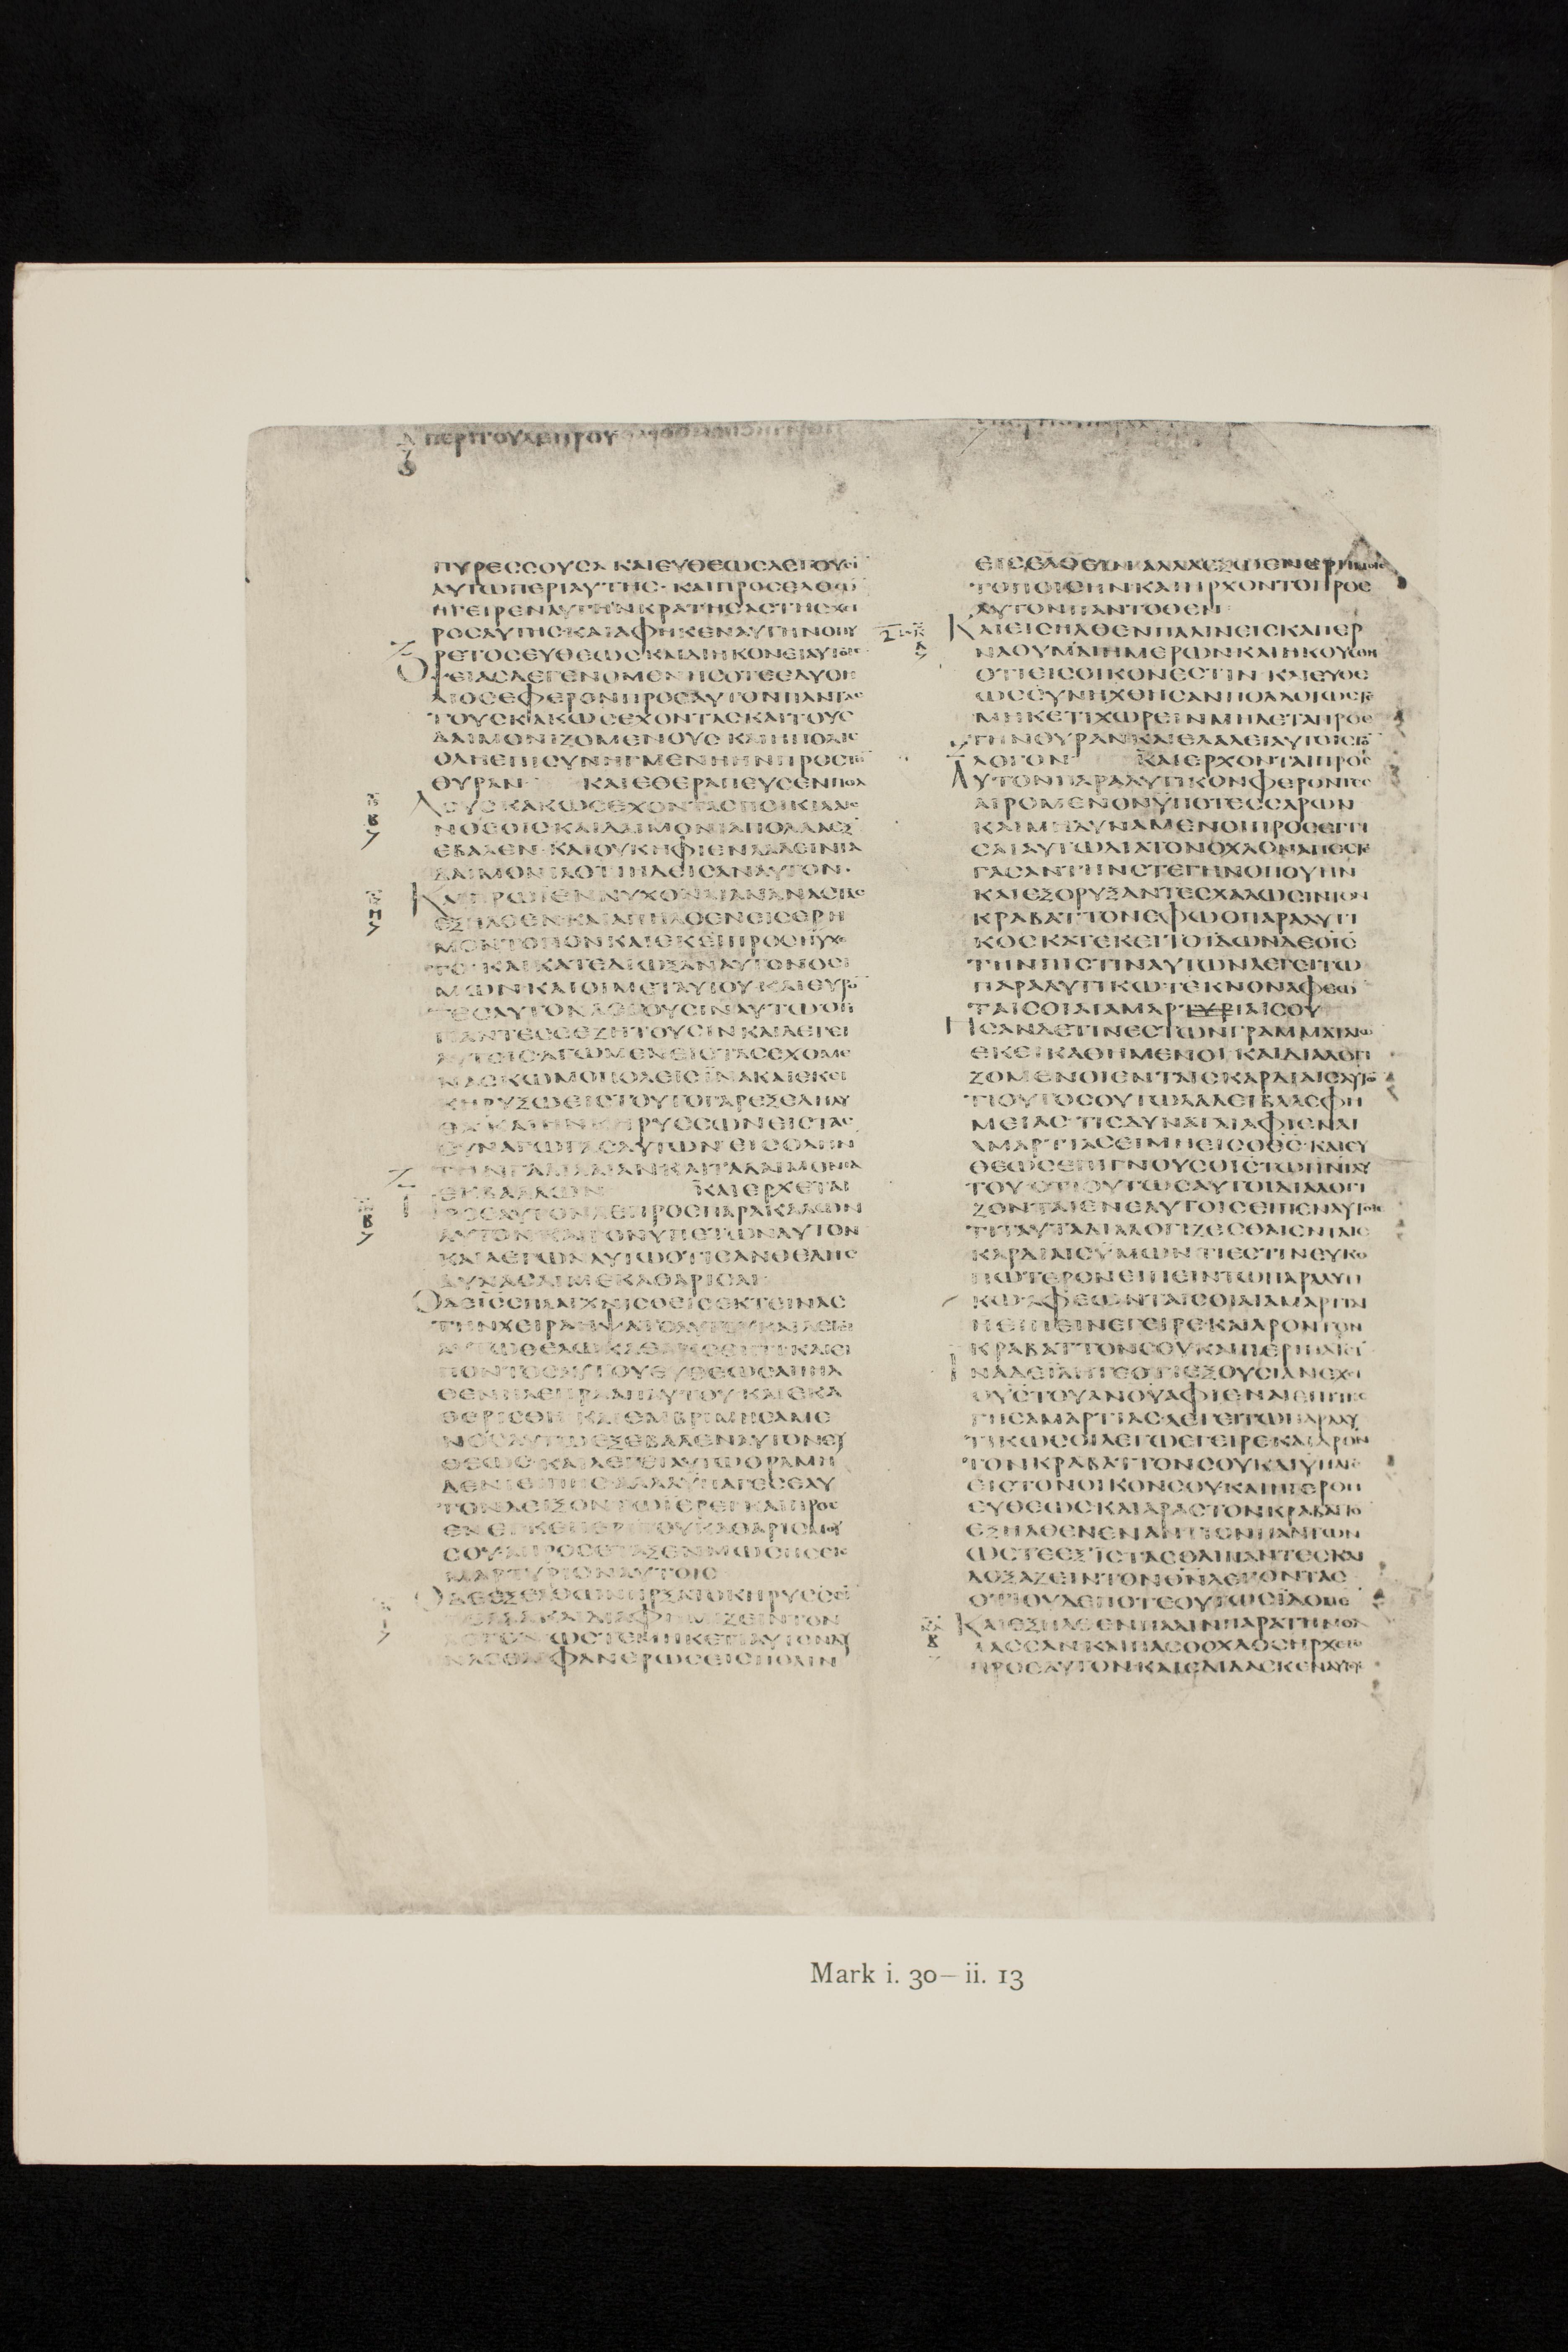 περιτουλεπρου
ΠΥΡΕϹϹΟΥϹΑ ΚΑΙΕΥΘΕΩϹΛΕΓΟΥϹΙ
ΑΥΤΩΠΕΡΙΑΥΤΗϹ· ΚΑΙΠΡΟϹΕΛΘΩ
ΗΓΕΙΡΕΝΑΥΤΗΝΚΡΑΤΗϹΑϹΤΗϹΧΕΙ
ΡΟϹΑΥΤΗϹ·ΚΑΙΑΦΗΚΕΝΑΥΤΗΝΟΠΥ
ΡΕΤΟϹΕΥΘΕΩϹΚΑΙΔΙΗΚΟΝΕΙΑΥΤΟΙϹ
ΟΨΕΙΑϹΔΕΓΕΝΟΜΕΝΗϹΟΤΕΕΔΥΟΗ
ΛΙΟϹΕΦΕΡΟΝΠΡΟϹΑΥΤΟΝΠΑΝΤΑϹ
ΤΟΥϹΚΑΚΩϹΕΧΟΝΤΑϹΚΑΙΤΟΥϹ
ΔΑΙΜΟΝΙΖΟΜΕΝΟΥϹ ΚΑΙΗΠΟΛΙϹ
ΟΛΗΕΠΙϹΥΝΗΓΜΕΝΗΗΝΠΡΟϹΤΗ
ΘΥΡΑΝ ΚΑΙΕΘΕΡΑΠΕΥϹΕΝΠΟΛ
ΛΟΥϹΚΑΚΩϹΕΧΟΝΤΑϹΠΟΙΚΙΛΑΙϹ
ΝΟϹΟΙϹΚΑΙΔΑΙΜΟΝΙΑΠΟΛΛΑΕΞ
ΕΒΑΛΕΝ·ΚΑΙΟΥΚΗΦΙΕΝΛΑΛΕΙΝΤΑ
ΔΑΙΜΟΝΙΑΟΤΙΗΔΕΙϹΑΝΑΥΤΟΝ·
ΚΑΙΠΡΩΙΕΝΝΥΧΟΝΛΙΑΝΑΝΑϹΤΑϹ
ΕΞΗΛΘΕΝ·ΚΑΙΑΠΗΛΘΕΝΕΙϹΕΡΗ
ΜΟΝΤΟΠΟΝΚΑΙΕΚΕΙΠΡΟϹΗΥΧΕ
ΤΟ· ΚΑΙΚΑΤΕΔΙΩΞΑΝΑΥΤΟΝΟϹΙ
ΜΩΝ·ΚΑΙΟΙΜΕΤΑΥΤΟΥ·ΚΑΙΕΥΡΟ
ΤΕϹΑΥΤΟΝΛΕΓΟΥϹΙΝΑΥΤΩΟΤΙ
ΠΑΝΤΕϹϹΕΖΗΤΟΥϹΙΝ ΚΑΙΛΕΓΕΙ
ΑΥΤΟΙϹΑΓΩΜΕΝΕΙϹΤΑϹΕΧΟΜΕ
ΝΑϹΚΩΜΟΠΟΛΕΙϹΪΝΑΚΑΙΕΚΕΙ
ΚΗΡΥΞΩΕΙϹΤΟΥΤΟΓΑΡΕΞΕΛΗΛΥ
ΘΑ ΚΑΙΗΝΚΗΡΥϹϹΩΝΕΙϹΤΑϹ
ϹΥΝΑΓΩΓΑϹΑΥΤΩΝ ΕΙϹΟΛΗΝ
ΤΗΝΓΑΛΙΛΑΙΑΝΚΑΙΤΑΔΑΙΜΟΝΙΑ
ΕΚΒΑΛΛΩΝ ΚΑΙΕΡΧΕΤΑΙ
ΠΡΟϹΑΥΤΟΝΛΕΠΡΟϹΠΑΡΑΚΑΛΩΝ
ΑΥΤΟΝΚΑΙΓΟΝΥΠΕΤΩΝΑΥΤΟΝ
ΚΑΙΛΕΓΩΝΑΥΤΩΟΤΙΕΑΝΘΕΛΗϹ
ΔΥΝΑϹΑΙΜΕΚΑΘΑΡΙϹΑΙ
ΟΔΕΙϹϹΠΛΑΓΧΝΙϹΘΕΙϹΕΚΤΕΙΝΑϹ
ΤΗΝΧΕΙΡΑΗΨΑΤΟΑΥΤΟΥΚΑΙΛΕΓΕΙ
ΑΥΤΩΘΕΛΩΚΑΘΑΡΙϹΘΗΤΙΚΑΙΕΙ
ΠΟΝΤΟϹΑΥΤΟΥΕΥΘΕΩϹΑΠΗΛ
ΘΕΝΗΛΕΠΡΑΑΠΑΥΤΟΥ·ΚΑΙΕΚΑ
ΘΕΡΙϹΘΗ ΚΑΙΕΜΒΡΙΜΗϹΑΜΕ
ΝΟϹΑΥΤΩΕΞΕΒΑΛΕΝΑΥΤΟΝΕΥ
ΘΕΩϹ·ΚΑΙΛΕΓΕΙΑΥΤΩΟΡΑΜΗ
ΔΕΝΙΕΙΠΗϹ·ΑΛΛΑΥΠΑΓΕϹΕΑΥ
ΤΟΝΔΕΙΞΟΝΤΩΙΕΡΕΙ·ΚΑΙΠΡΟϹ
ΕΝΕΓΚΕΠΕΡΙΤΟΥΚΑΘΑΡΙϹΜΟΥ
ϹΟΥΑΠΡΟϹΕΤΑΞΕΝΜΩϹΗϹΕΙϹ
ΜΑΡΤΥΡΙΟΝΑΥΤΟΙϹ
ΟΔΕΕΞΕΛΘΩΝΗΡΞΑΤΟΚΗΡΥϹϹΕΙ
ΠΟΛΛΑΚΑΙΔΙΑΦΗΜΙΖΕΙΝΤΟΝ
ΛΟΓΟΝ ΩϹΤΕΜΗΚΕΤΙΑΥΤΟΝΔΥ
ΝΑϹΘΑΙΦΑΝΕΡΩϹΕΙϹΠΟΛΙΝ
ΕΙϹΕΛΘΕΙΝΑΛΛΑΕΞΩΕΝΕΡΗΜΟΙϹ
ΤΟΠΟΙϹΗΝΚΑΙΗΡΧΟΝΤΟΠΡΟϹ
ΑΥΤΟΝΠΑΝΤΟΘΕΝ
ΚΑΙΕΙϹΗΛΘΕΝΠΑΛΙΝΕΙϹΚΑΠΕΡ
ΝΑΟΥΜΔΙΗΜΕΡΩΝΚΑΙΗΚΟΥϹΘΗ
ΟΤΙΕΙϹΟΙΚΟΝΕϹΤΙΝ·ΚΑΙΕΥΘΕ
ΩϹϹΥΝΗΧΘΗϹΑΝΠΟΛΛΟΙΩϹΤΕ
ΜΗΚΕΤΙΧΩΡΕΙΝΜΗΔΕΤΑΠΡΟϹ
ΤΗΝΘΥΡΑΝΚΑΙΕΛΑΛΕΙΑΥΤΟΙϹΤΟ
ΛΟΓΟΝ ΚΑΙΕΡΧΟΝΤΑΙΠΡΟϹ
ΑΥΤΟΝΠΑΡΑΛΥΤΙΚΟΝΦΕΡΟΝΤΕϹ
ΑΙΡΟΜΕΝΟΝΫΠΟΤΕϹϹΑΡΩΝ
ΚΑΙΜΗΔΥΝΑΜΕΝΟΙΠΡΟϹΕΓΓΙ
ϹΑΙΑΥΤΩΔΙΑΤΟΝΟΧΛΟΝΑΠΕϹΤΕ
ΓΑϹΑΝΤΗΝϹΤΕΓΗΝΟΠΟΥΗΝ
ΚΑΙΕΞΟΡΥΞΑΝΤΕϹΧΑΛΩϹΙΝΤΟΝ
ΚΡΑΒΑΤΤΟΝΕΦΩΟΠΑΡΑΛΥΤΙ
ΚΟϹΚΑΤΕΚΕΙΤΟΪΔΩΝΔΕΟΙϹ
ΤΗΝΠΙϹΤΙΝΑΥΤΩΝΛΕΓΕΙΤΩ
ΠΑΡΑΛΥΤΙΚΩ·ΤΕΚΝΟΝΑΦΕΩ
ΤΑΙϹΟΙΑΙΑΜΑΡΤΥΡΙΑΙϹΟΥ
ΗϹΑΝΔΕΤΙΝΕϹΤΩΝΓΡΑΜΜΑΤΑΙΩ
ΕΚΕΙΚΑΘΗΜΕΝΟΙ·ΚΑΙΔΙΑΛΟΓΙ
ΖΟΜΕΝΟΙΕΝΤΑΙϹΚΑΡΔΙΑΙϹΑΥΤΩ
ΤΙΟΥΤΟϹΟΥΤΩΛΑΛΕΙΒΛΑϹΦΗ
ΜΕΙΑϹ·ΤΙϹΔΥΝΑΤΑΙΑΦΙΕΝΑΙ
ΑΜΑΡΤΙΑϹΕΙΜΗΕΙϹΟΘϹ·ΚΑΙΕΥ
ΘΕΩϹΕΠΙΓΝΟΥϹΟΙϹΤΩΠΝΙΑΥ
ΤΟΥ·ΟΤΙΟΥΤΩϹΑΥΤΟΙΔΙΑΛΟΓΙ
ΖΟΝΤΑΙΕΝΕΑΥΤΟΙϹΕΙΠΕΝΑΥΤΟΙϹ
ΤΙΤΑΥΤΑΔΙΑΛΟΓΙΖΕϹΘΑΙΕΝΤΑΙϹ
ΚΑΡΔΙΑΙϹΫΜΩΝ·ΤΙΕϹΤΙΝΕΥΚΟ
ΠΩΤΕΡΟΝΕΙΠΕΙΝΤΩΠΑΡΑΛΥΤΙ
ΚΩ·ΑΦΕΩΝΤΑΙϹΟΙΑΙΑΜΑΡΤΙΑΙ
ΗΕΙΠΕΙΝΕΓΕΙΡΕΚΑΙΑΡΟΝΤΟΝ
ΚΡΑΒΑΤΤΟΝϹΟΥΚΑΙΠΕΡΙΠΑΤΕΙ
ΙΝΑΔΕΙΔΗΤΕΟΤΙΕΞΟΥϹΙΑΝΕΧΕΙ
ΟΥϹΤΟΥΑΝΟΥΑΦΙΕΝΑΙΕΠΙΤΗϹ
ΓΗϹΑΜΑΡΤΙΑϹΛΕΓΕΙΤΩΠΑΡΑΛΥ
ΤΙΚΩϹΟΙΛΕΓΩΕΓΕΙΡΕΚΑΙΑΡΟΝ
ΤΟΝΚΡΑΒΑΤΤΟΝϹΟΥΚΑΙΥΠΑΓΕ
ΕΙϹΤΟΝΟΙΚΟΝϹΟΥΚΑΙΗΓΕΡΘΗ
ΕΥΘΕΩϹΚΑΙΑΡΑϹΤΟΝΚΡΑΒΑΤΤΟ
ΕΞΗΛΘΕΝΕΝΑΝΤΙΟΝΠΑΝΤΩΝ
ΩϹΤΕΕΞΙϹΤΑϹΘΑΙΠΑΝΤΕϹΚΑΙ
ΔΟΞΑΖΕΙΝΤΟΝΘΝΛΕΓΟΝΤΑϹ
ΟΤΙΟΥΔΕΠΟΤΕΟΥΤΩϹΕΙΔΟΜΕ
ΚΑΙΕΞΗΛΘΕΝΠΑΛΙΝΠΑΡΑΤΗΝΘΑ
ΛΑϹϹΑΝ·ΚΑΙΠΑϹΟΟΧΛΟϹΗΡΧΕΤΟ
ΠΡΟϹΑΥΤΟΝ·ΚΑΙΕΔΙΔΑϹΚΕΝΑΥΤΟΥϹ
Mark i. 30—ii. 13